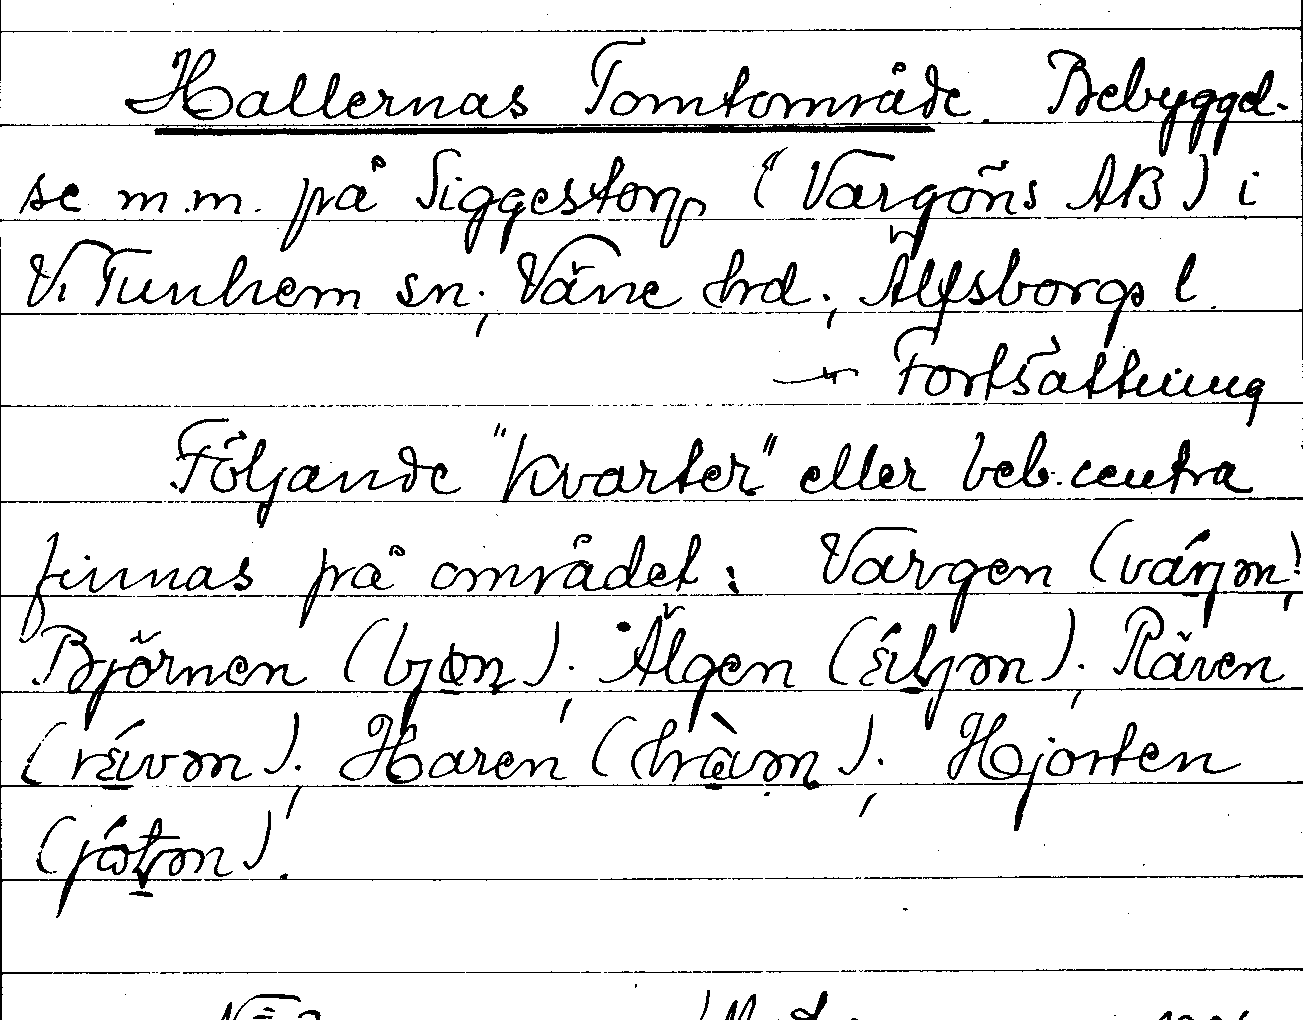 Hallernas Tomtområde. Bebyggel-
se m.m. på Siggestorp (Vargöns AB) i
V. Tunhem sn; Väne hrd.; Älfsborgs l.
Fortsättning
Följande "kvarter" eller beb.centra
finnas på området: Vargen
Björnen; Älgen; Räven
; Haren; Hjorten